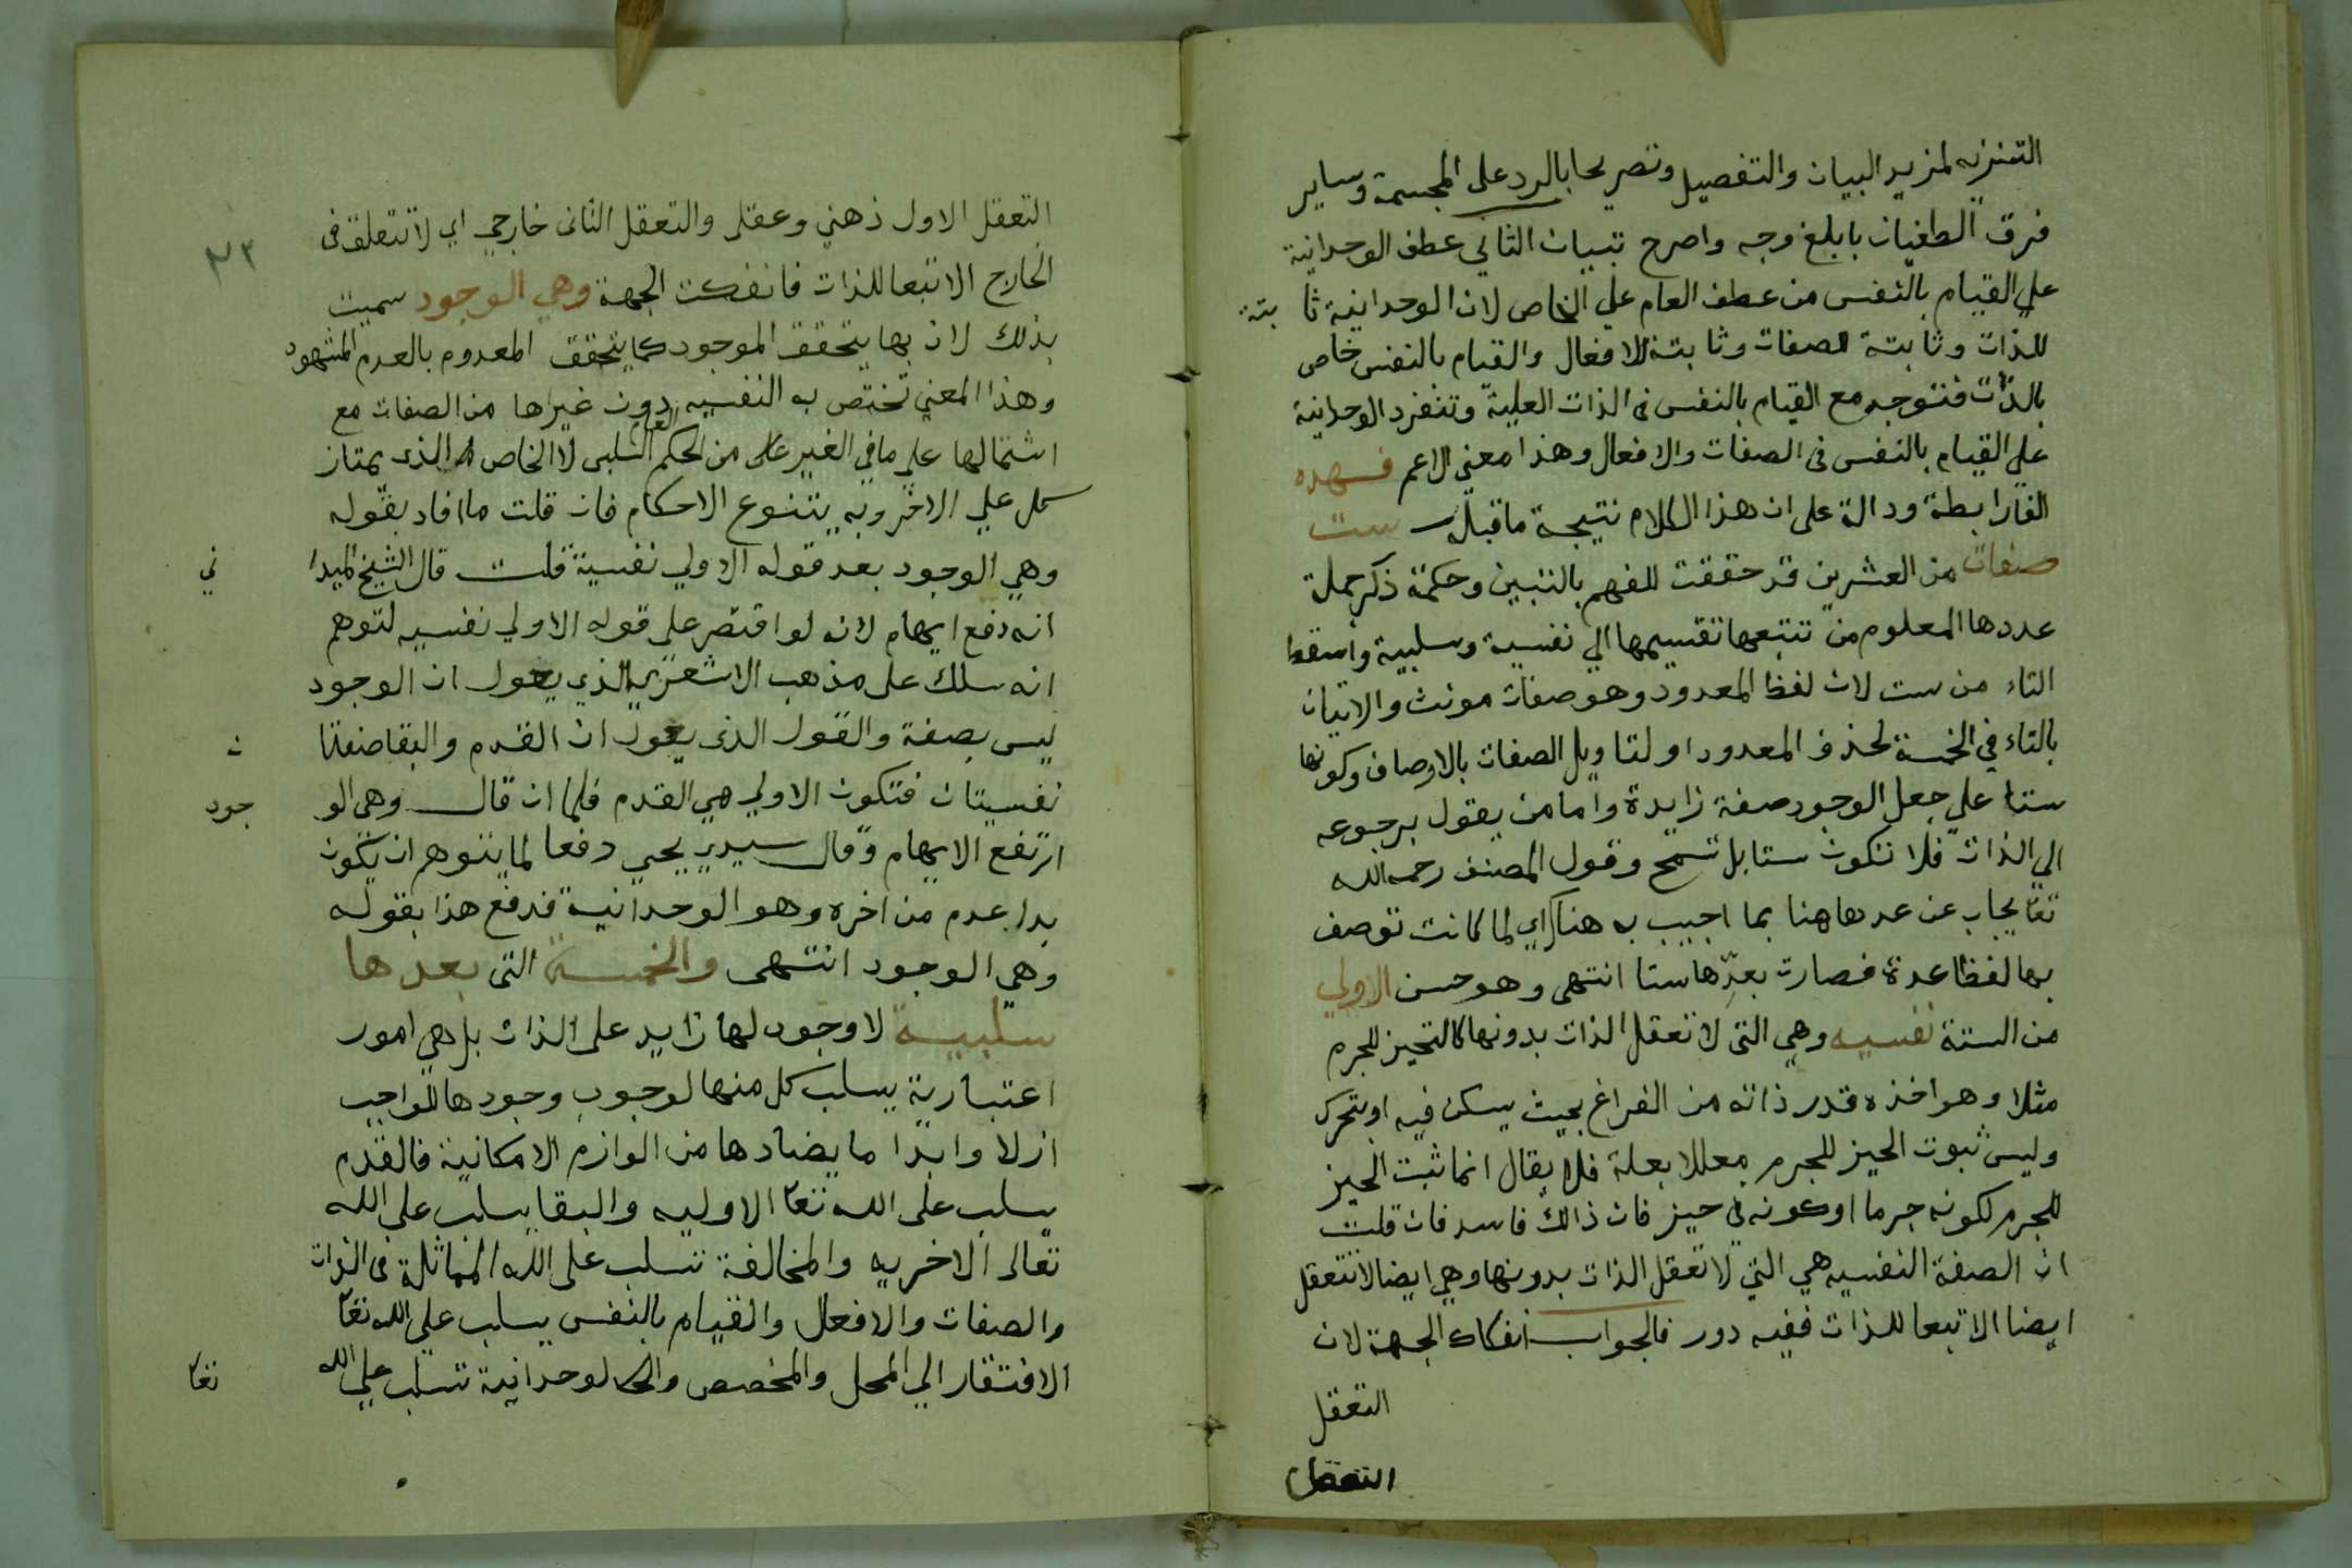 التنزيه لمزيد البيان والتفصيل وتصريحا بالرد على المجسمة وساير
فرق الطغيان بابلغ وجه واصرح تبيان الثاني عطف الوحدانية
علي القيام بالنفس من عطف العام علي الخاص لان الوحدانية ثا بتة
للذات وثابتة للصفات وثابتة للافعال والقيام بالنفس خاص
بالذات فتتوجه مع القيام بالنفس في الذات العلية وتنفرد الوحدانية
علي القيام بالنفس في الصفات والافعال وهذا معني الاعم فهده
الفا رابطة ودالة على ان هذا الكلام نتيجة ما قبله ست
صفات من العشرين قد حققت للفهم بالتبين وحكمة ذكر جملة
عددها المعلوم من تتبعها تقسيمها الي نفسية وسلبية واسقط
التاء من ست لان لفظ المعدود وهو صفات مونث والاتيان
بالتاء في الخمسة لحذف المعدود او لتاويل الصفات بالاوصاف وكونها
ستا علي جعل الوجود صفة زايدة واما من يقول برجوعه
الي الذات فلا تكون ستا بل تسمح وقول المصنف رحمه الله
تعا يجاب عن عدها هنا بما اجيب به هناك اي لما كانت توصف
بها لفظا عدة فصارت بعدها ستا انتهى وهو حسن الاولي
من الستة نفسيه وهي التى لا تعقل الذات بدونها كالتحيز للجرم
مثلا وهو اخذه قدر ذاته من الفراغ بحيث يسكن فيه او يتحرك
وليس ثبوت الحيز للجرم معللا بعلة فلا يقال انما ثبت الحيز
للجرم لكونه جرما او كونه في حيز فان ذالك فاسد فان قلت
ان الصفة النفسيه هي التي لا تعقل الذات بدونها وهي ايضا لا تتعقل
ايضا الا تبعا للذات ففيه دور فالجواب انفكاك الجهة لان
التعقل
التعقل
٢٣
التعقل الاول ذهني وعقلى والتعقل الثانى خارجي اي لا تتعلق فى
الخارج الا تبعا للذات فانفكت الجهة وهي الوجود سميت
بذلك لان بها يتحقق الموجود كما يتحقق المعدوم بالعدم المشهود
وهذا المعني تختص به النفسيه دون غيراها من الصفات مع
اشتمالها علي ما في الغير على من الحكم العام السلبى لا الخاص الذى يمتاز
كل علي الاخر وبه يتنوع الاحكام فان قلت ما افاد بقوله
وهي الوجود بعد قوله الاولي نفسية قلت قال الشيخ الميدا ني
انه دفع ايهام لانه لو اقتصر علي قوله الاولي نفسيه لتوهم
انه سلك على مذهب الاشعري الذي يقول ان الوجود
ليس بصفة والقول الذى يقول ان القدم والبقا صفتا ن
نفسيتان فتكون الاولي هي القدم فلما ان قال وهى الو جود
ارتفع الايهام وقال سيدي يحيي دفعا لما يتوهم ان يكون
بدا عدم من اخره وهو الوحدانية فدفع هذا بقوله
وهي الوجود انتهى والخمسة التى بعدها
سلبية لا وجود لها زايد على الذات بل هي امور
اعتبارية يسلب كل منها لوجوب وجودها للواجب
ازلا وابدا ما يضادها من الوازم الامكانية فالقدم
يسلب على الله تعا الاوليه والبقا يسلب علي الله
تعالى الاخريه والمخالفة تسلب على الله المماثلة فى الذات
والصفات والافعال والقيام بالنفس يسلب علي الله تعا
الافتقار الي المحل والمخصص والوحدانية تسلب علي الله تعا